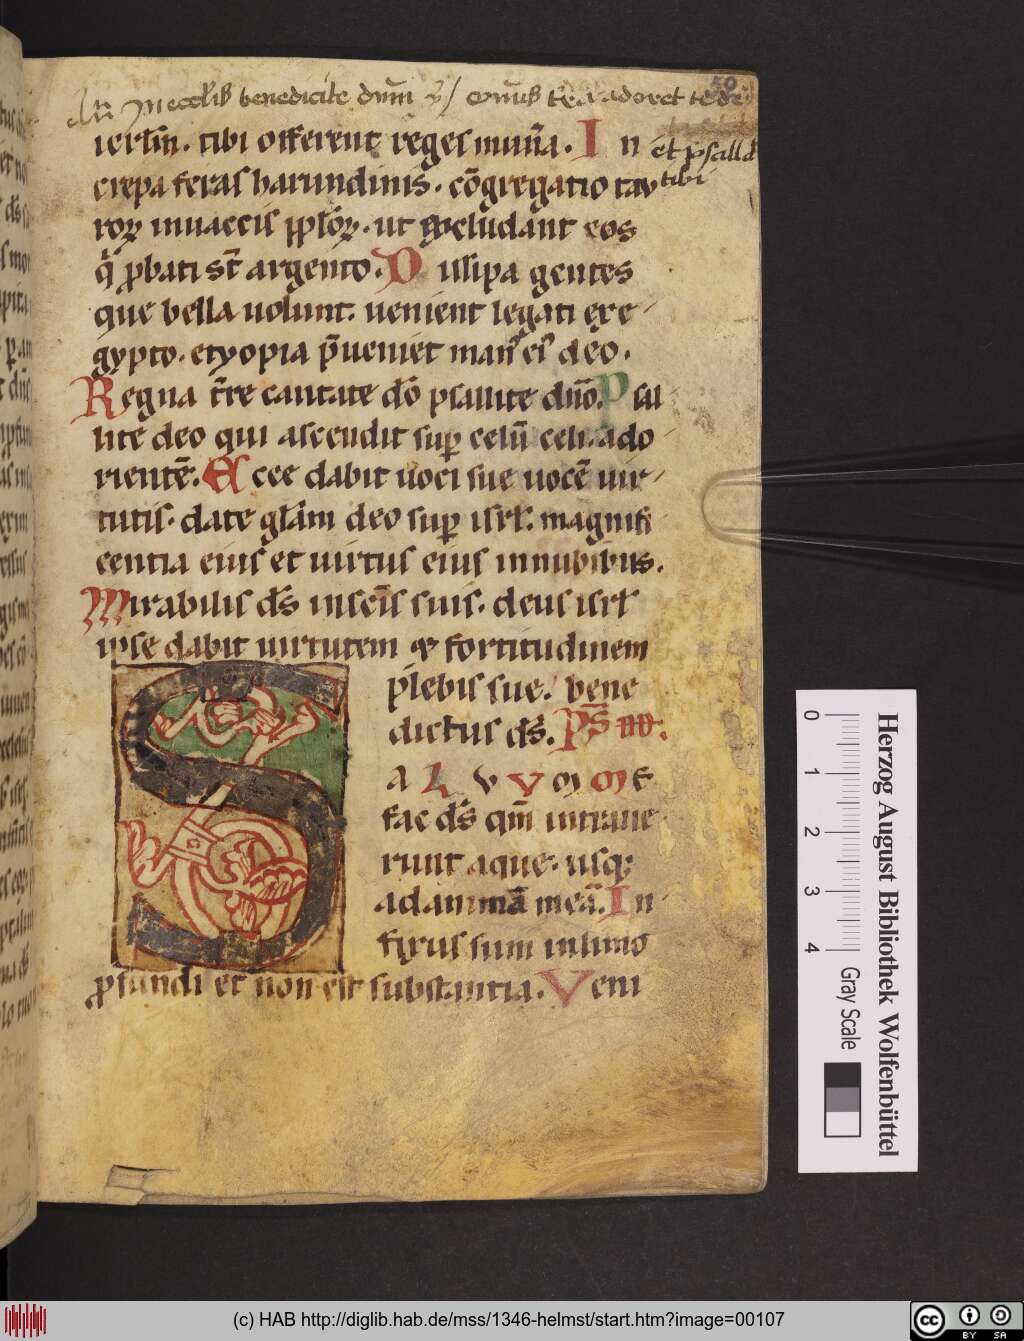 An̄ In eccl̄iis benedicite dn̄m
et psall&
tibi
50
ierl̄m. tibi offerent reges mun̄a. In
crepa feras harundinis. cōgregatio tau
roꝝ in uaccis ppl̄oꝝ. ut excludant eos
q̄ ꝓbati st̄ argento. Disipa gentes
que bella uolunt. uenient legati ex e
gypto. etyopia p̄ueniet man' ei' deo.
Regna tr̄re cantate dō psallite dn̄o. Psal
lite deo qui ascendit suꝑ celū celi. ad o
rientē. Ecce dabit uoci sue uocē uir
tutis. date gl̄am deo suꝑ isrl̄. magnifi
centia eius et uirtus eius in nubibus.
Mirabilis ds̄ in scīs suis. deus isrl̄
ipse dabit uirtutem et fortitudinem
plebis sue. bene
dictus ds̄. Ps̄
S A L V V M M E
fac ds̄ qm̄ intraue
runt aque. usqꝫ
ad animā meā. In
fixus sum in limo
ꝓfundi et non est substantia. Veni
0 1 2 3 4
Herzog August Bibliothek Wolfenbüttel
Gray Scale
(c) HAB http://diglib.hab.de/mss/1346-helmst/start.htm?image=00107
cc BY SA